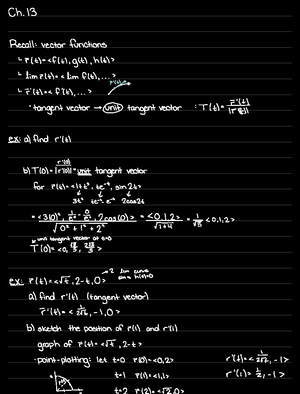 Ch. 13
Recall: vector functions
↳ r⃗(t)=<f(t), g(t), h(t)>
↳ lim r⃗(t) = < lim f(t), ... >
↳ r⃗'(t)=< f'(t), ... >
· tangent vector → unit tangent vector : T(t) = r⃗'(t) / |r⃗'(t)|
ex: a) find r'(t)
b) T(0) = r'(0) / |r'(0)| = unit tangent vector
for r(t)=<1+t³, te⁻ᵗ, sin2t>
3t² 2cos2t
√(0² + 1² + 2²) = <0,1,2> / √(1+4) = 1/√5 <0,1,2>
unit tangent vector at t=0
ex: r⃗(t)=<√t, 2-t, 0>
a) find r'(t) (tangent vector)
r⃗'(t)=< 1/2√t, -1, 0>
b) sketch the position of r(1) and r'(1)
graph of r⃗(t)=<√t, 2-t>
point-plotting: let t=0 r⃗(0)=<0,2> r'(t)=< 1/2√t, -1>
t=1 r⃗(1)=<1,1> r'(1)= 1/2, -1>
t=2 r⃗(2)=<√2,0>